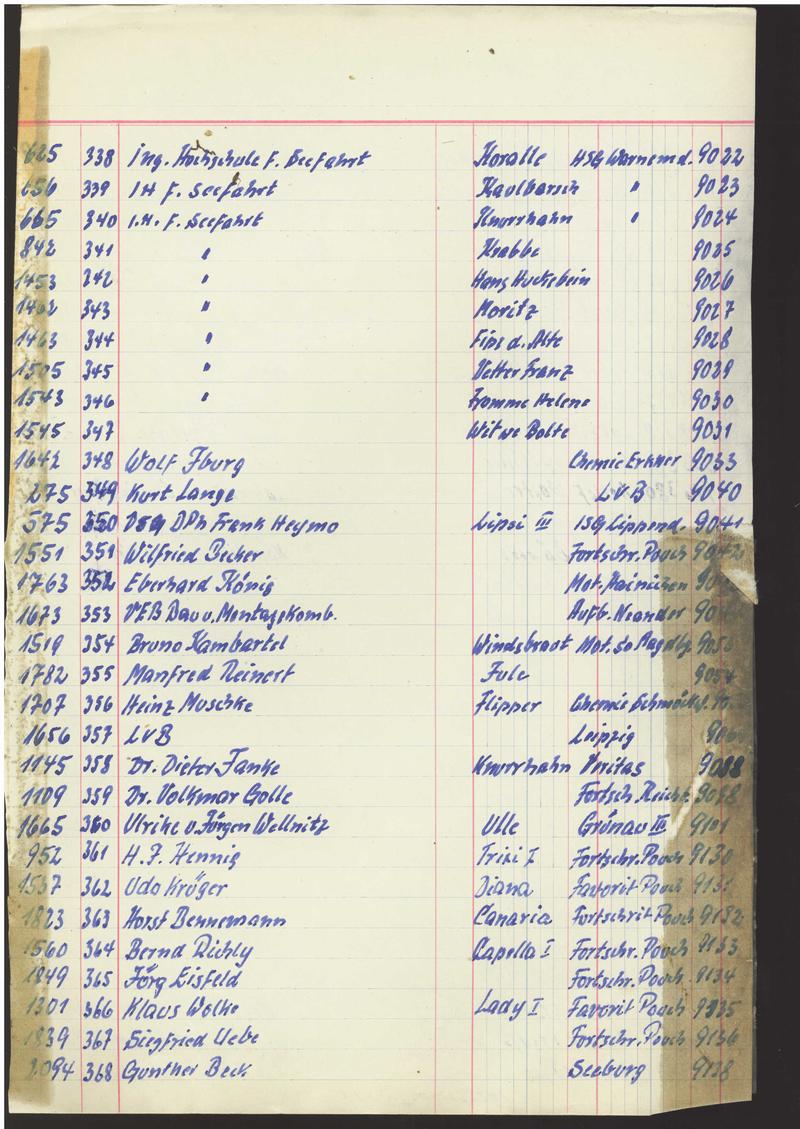 625 338 Ing. Hochschule f. Seefahrt Koralle HSG Warnemd. 9022
656 339 IH f. Seefahrt Kaulbarsch " 9023
665 340 I.H. f. Seefahrt Knurrhahn " 9024
842 341 " Krabbe 9025
1453 342 " Hans Huckebein 9026
1462 343 " Moritz 9027
1463 344 " Fips d. Affe 9028
1505 345 " Vetter Franz 9029
1543 346 " Fromme Helene 9030
1545 347 Witwe Bolte 9031
1642 348 Wolf Iburg Chemie Erkner 9033
275 349 Kurt Lange LVB 9040
575 350 DSG DPh Frank Heymo Lipsi III ISG Lippend. 9041
1551 351 Wilfried Becker Fortschr. Pouch 9042
1763 352 Eberhard König Mot. Hainichen
1673 353 VEB Bau u. Montagekomb. Aufb. Meander
1519 354 Bruno Kambartel Windsbraut Mot. So Magdbg.
1782 355 Manfred Reinert Eule
1707 356 Heinz Muschke Flipper Chemie Schmöckw.
1656 357 LVB Leipzig
1145 358 Dr. Dieter Fanke Knurrhahn Veritas 9088
1109 359 Dr. Volkmar Golle Fortsch. Reichb. 9098
1665 360 Ulrike u. Jürgen Wellnitz Ulle Grünau III 9101
952 361 H. J. Hennig Trixi I Fortschr. Pouch 9130
1537 362 Udo Krüger Diana Favorit Pouch 9131
1823 363 Horst Bennemann Canaria Fortschrit Pouch 9132
1560 364 Bernd Richly Capella I Fortschr. Pouch 9133
1849 365 Jörg Eisfeld Fortschr. Pouch 9134
1301 366 Klaus Wolke Lady I Favorit Pouch 9135
1839 367 Siegfried Uebe Fortschr. Pouch 9136
2094 368 Gunther Beck Seeburg 9138